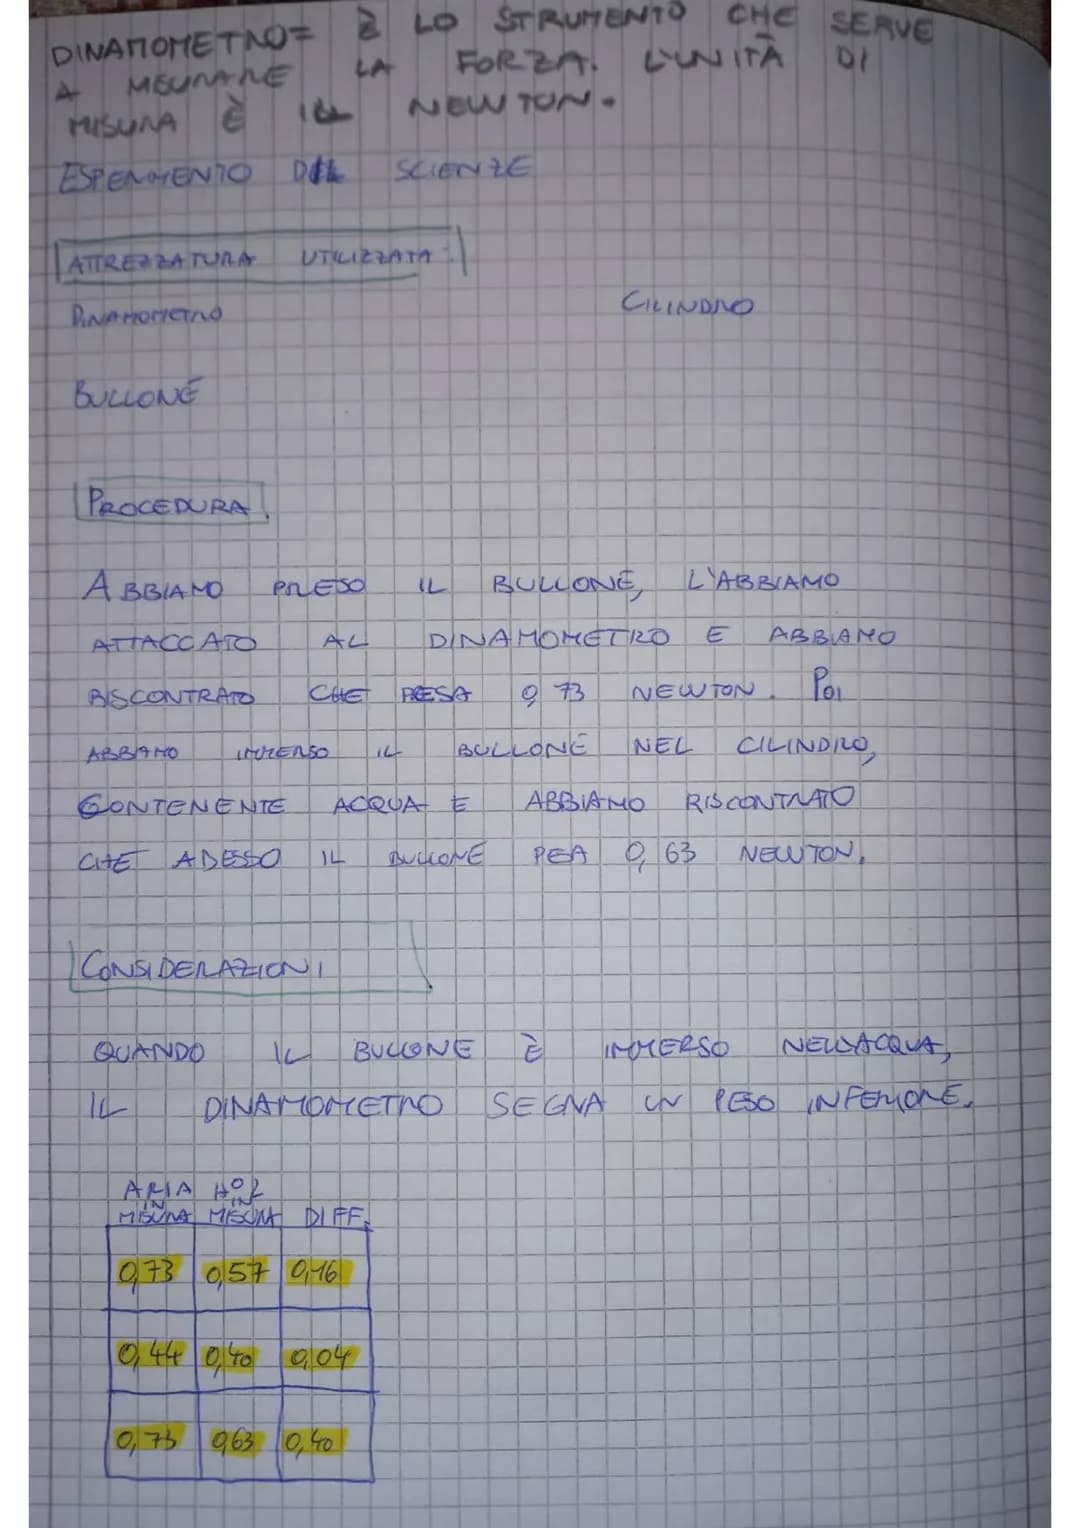 DINAMOMETRO= È LO STRUMENTO CHE SERVE
A MISURARE LA FORZA. L'UNITÀ DI
MISURA È IL NEWTON.
ESPERIMENTO DI SCIENZE
ATTREZZATURA UTILIZZATA:
DINAMOMETRO CILINDRO
BULLONE
PROCEDURA
ABBIAMO PRESO IL BULLONE, L'ABBIAMO
ATTACCATO AL DINAMOMETRO E ABBIAMO
RISCONTRATO CHE PESA 0,73 NEWTON. POI
ABBIAMO IMMERSO IL BULLONE NEL CILINDRO,
CONTENENTE ACQUA E ABBIAMO RISCONTRATO
CHE ADESSO IL BULLONE PEA 0,63 NEWTON.
CONSIDERAZIONI
QUANDO IL BULLONE È IMMERSO NELL'ACQUA,
IL DINAMOMETRO SEGNA UN PESO INFERIORE.
ARIA H02
IN IN
MISURA MISURA DIFF.
0,73 0,57 0,16
0,44 0,40 0,04
0,73 0,63 0,40